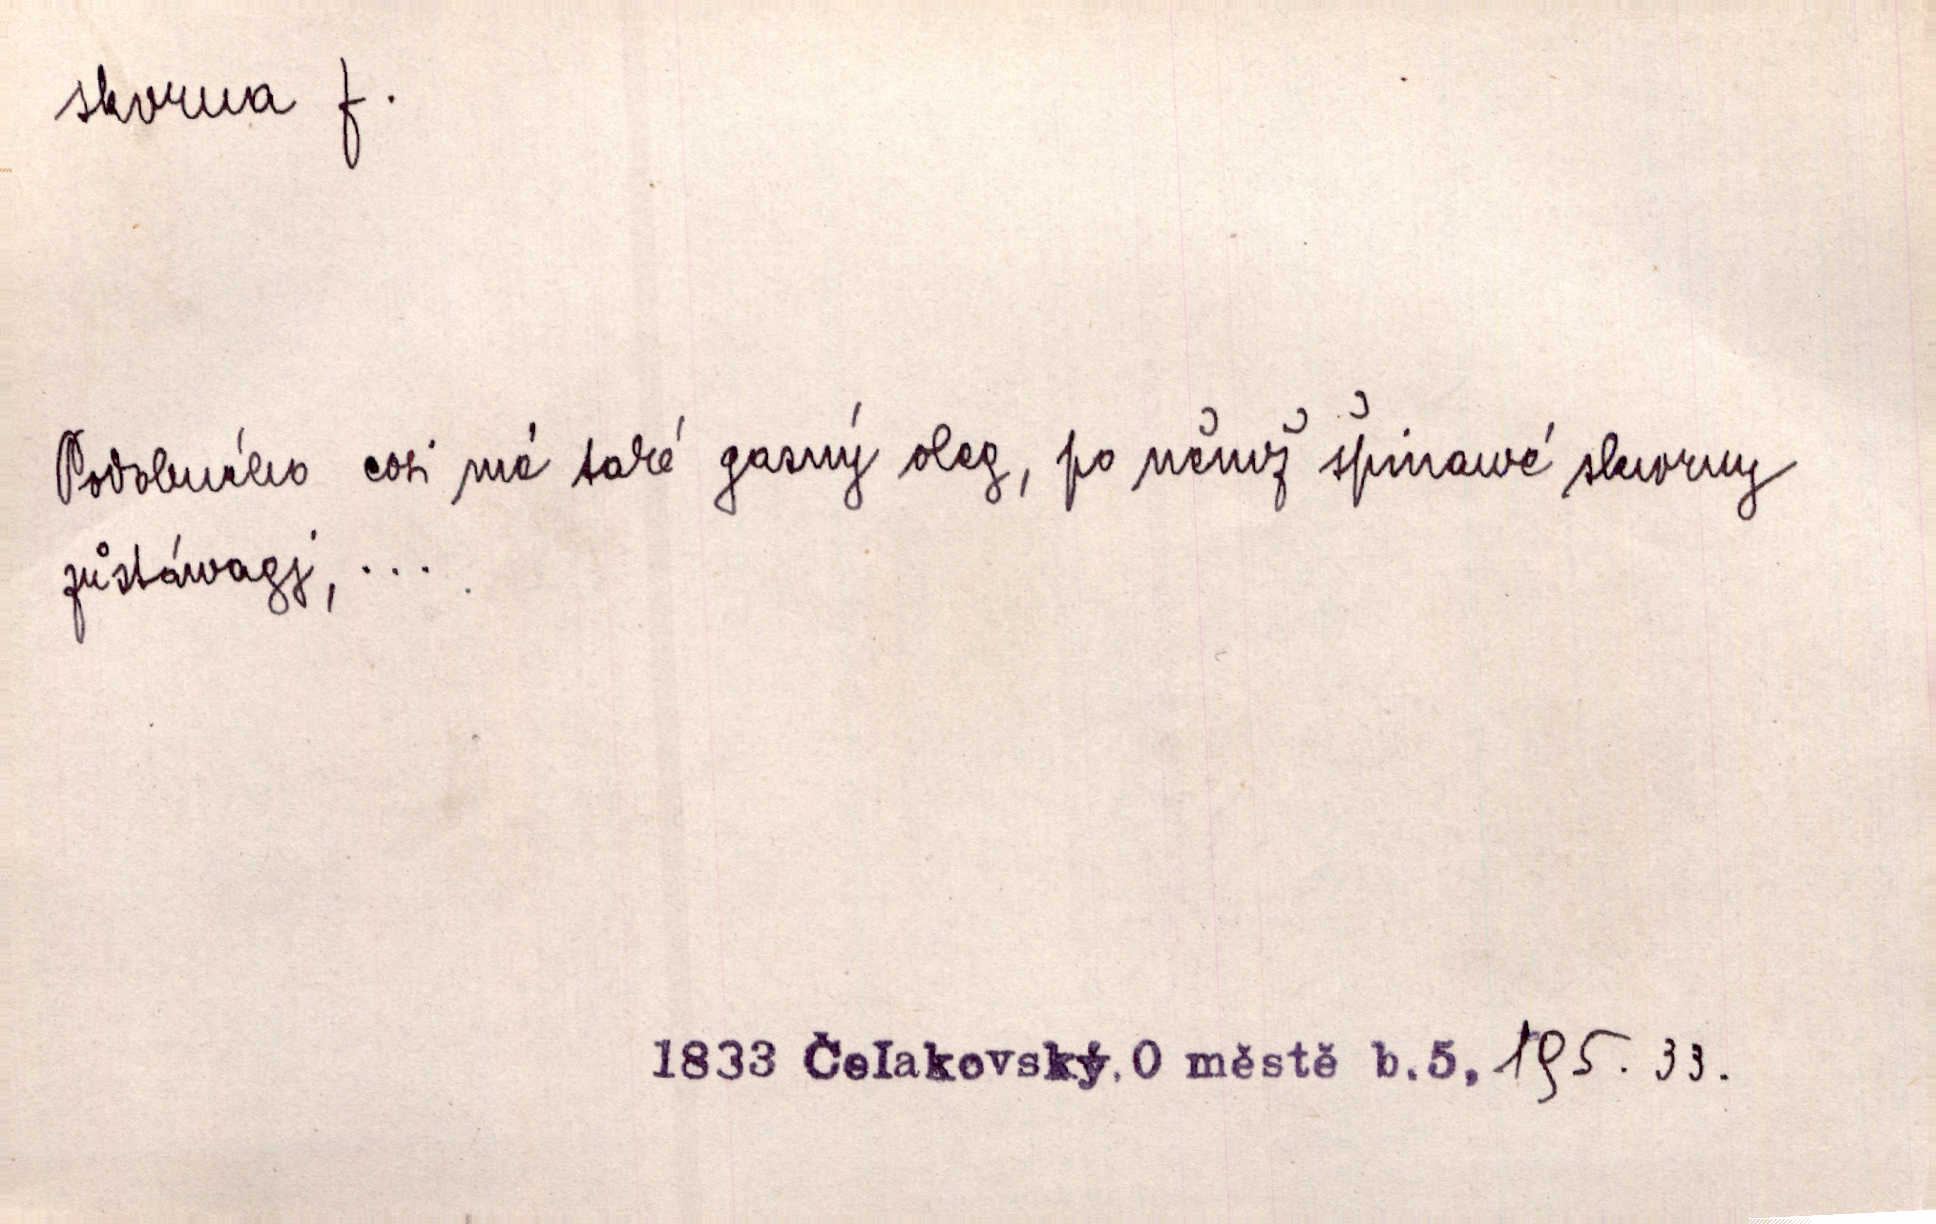 skvrna f.
Podobného cosi má také gasný oleg, po němž špinawé skwrny
zůstáwagj, ...
1833 Čelakovský.O městě b.5, 195. 33.